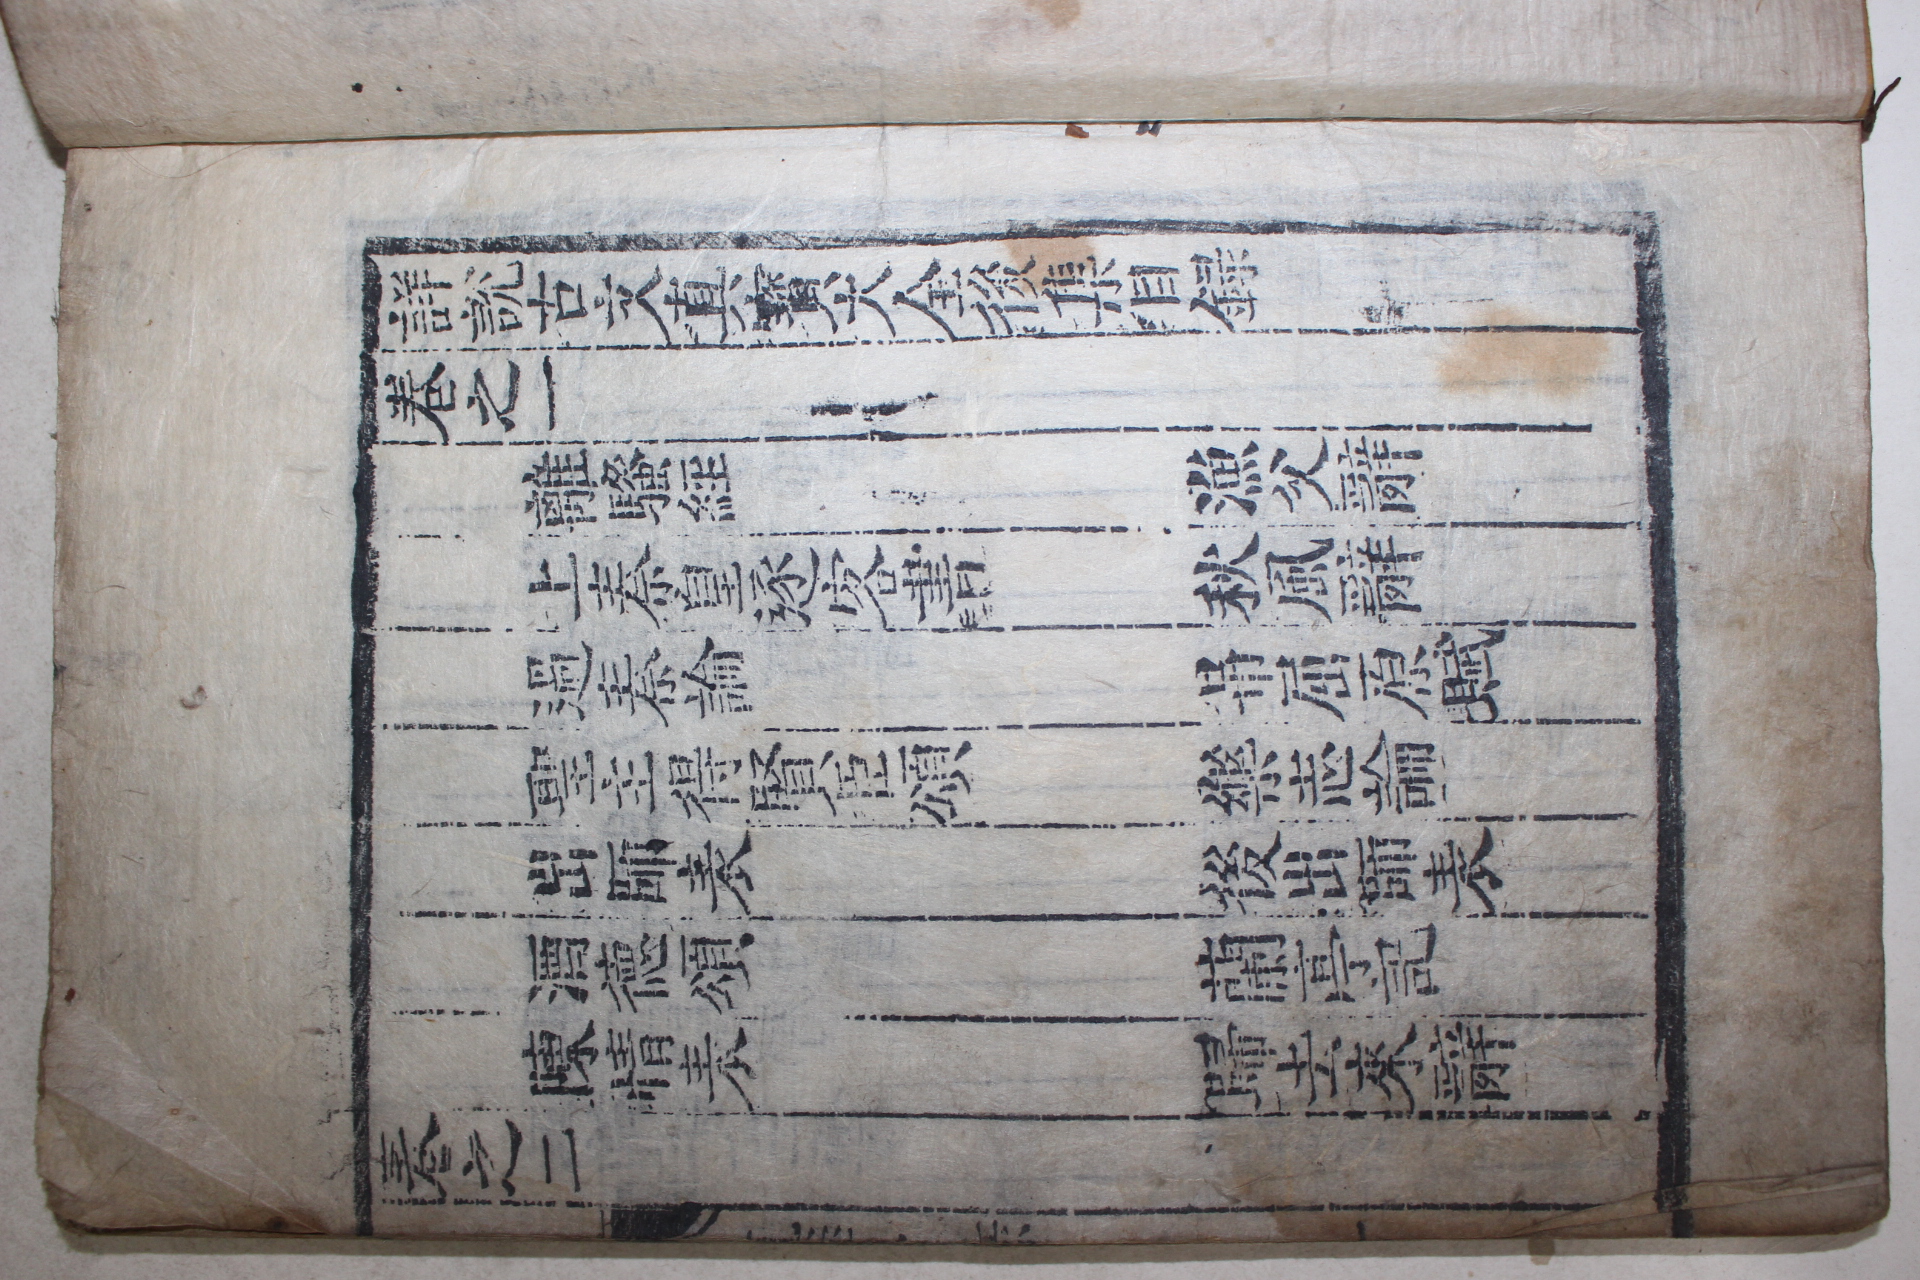 詳說古文真寶大全後集目録
卷之一
離騷經 漁父辭
上秦皇逐客書 秋風辭
過秦論 弔屈原賦
聖主得賢臣頌 樂志論
出師表 後出師表
酒德頌 蘭亭記
陳情表 歸去來辭
卷之二